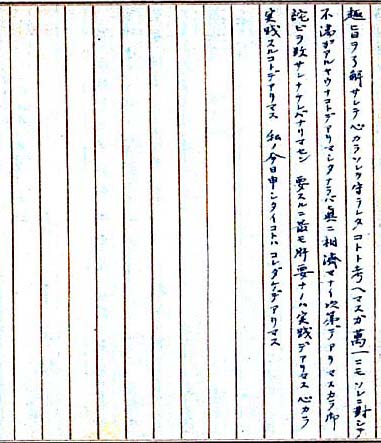 趣旨ヲ了解サレテ心カラソレヲ守ラレルコトト考ヘマスガ萬一ニモソレニ對シテ
不満ガアルヤウナコトデアリマシタナラバ真ニ相濟マナイ次第デアリマスカラ御
詫ビヲ致サレナケレバナリマセン 要スルニ最モ肝要ナノハ実践デアリマス 心カラ
実践スルコトデアリマス 私ノ今日申シタイコトハコレダケデアリマス